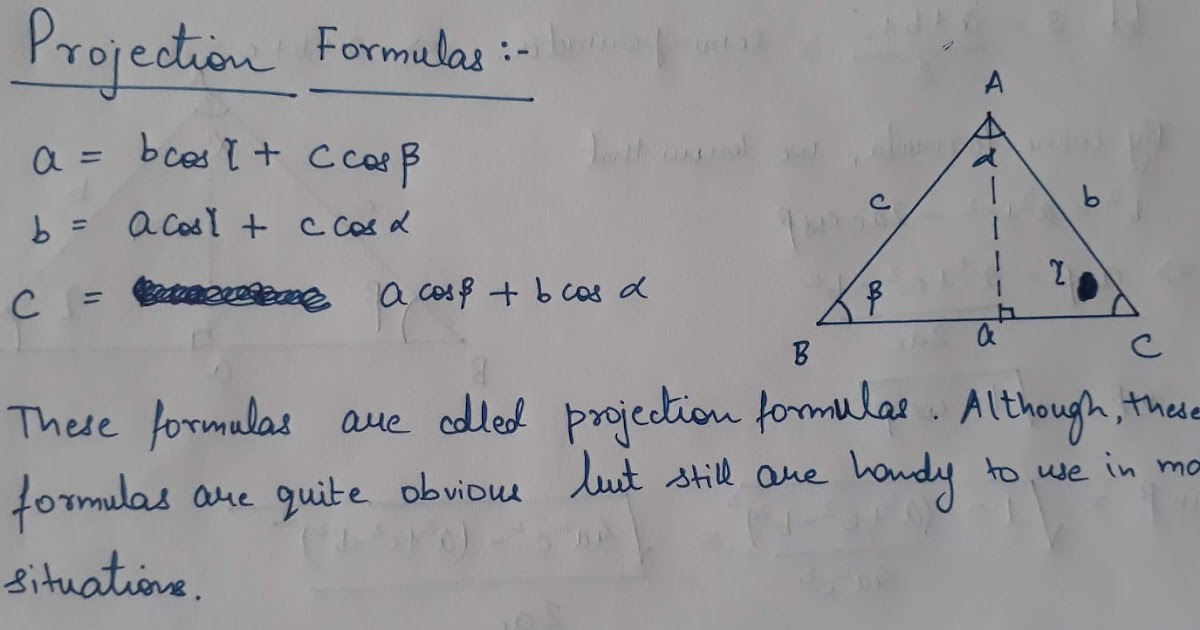 Projection Formulas :-
a = b cos γ + c cos β
b = a cos γ + c cos α
c = a cos β + b cos α
A
α
c
b
β
γ
B
a
C
These formulas are called projection formulas. Although, these
formulas are quite obvious but still are handy to use in
situations.